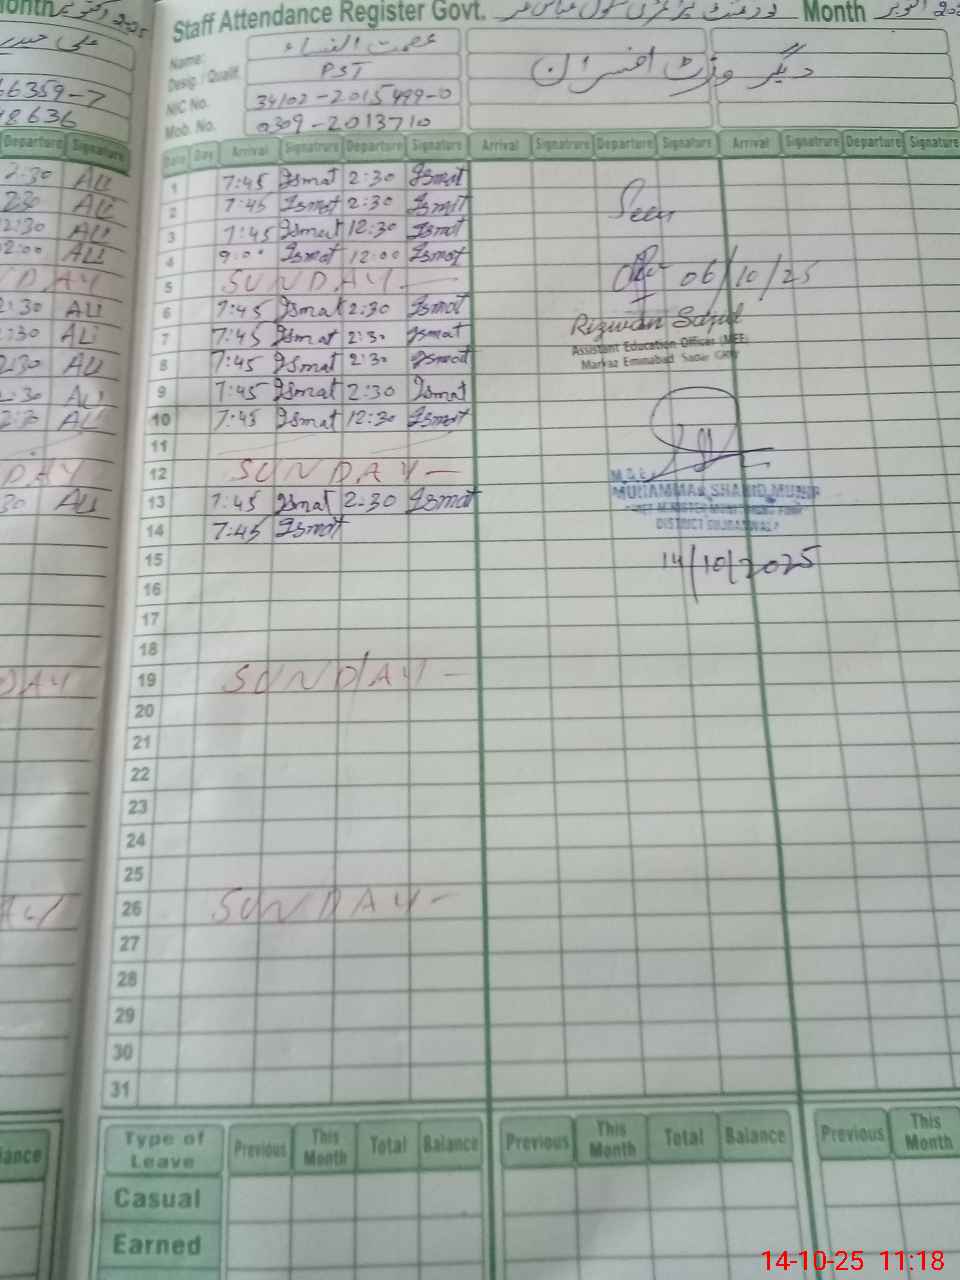 Staff Attendance Register Govt. Month اکتوبر
Name: عصمت النساء
Desig. / Qualif. PST
دیگر وزٹ افسران
NIC No. 34102-2015499-0
Mob. No. 0309-2013710
66359-7
48636
Departure Signature
2:30 ALI
230 ALI
12:30 ALI
2:00 ALI
DAY
2:30 ALI
2:30 ALI
2:30 ALI
2:30 ALI
ALI
DAY
30 ALI
DAY
Date Day Arrival Signatrure Departure Signature Arrival Signatrure Departure Signature Arrival Signatrure Departure Signature
1 7:45 Ismat 2:30 Ismat
2 7:45 Ismat 2:30 Ismat
3 7:45 Ismat 12:30 Ismat
4 9:00 Ismat 12:00 Ismat
5 SUNDAY
6 7:45 Ismat 2:30 Ismat
7 7:45 Ismat 2:30 Ismat
8 7:45 Ismat 2:30 Ismat
9 7:45 Ismat 2:30 Ismat
10 7:45 Ismat 12:30 Ismat
11
12 SUNDAY
13 7:45 Ismat 2:30 Ismat
14 7:45 Ismat
15
16
17
18
19 SUNDAY
20
21
22
23
24
25
26 SUNDAY
27
28
29
30
31
Seen
06/10/25
Rizwan Sajid
Assistant Education Officer (MEE)
Markaz Eminabad Sadar
MUHAMMAD SHAHID MUNIR
14/10/2025
Type of Leave Previous This Month Total Balance Previous This Month Total Balance Previous This Month
Casual
Earned
14-10-25 11:18